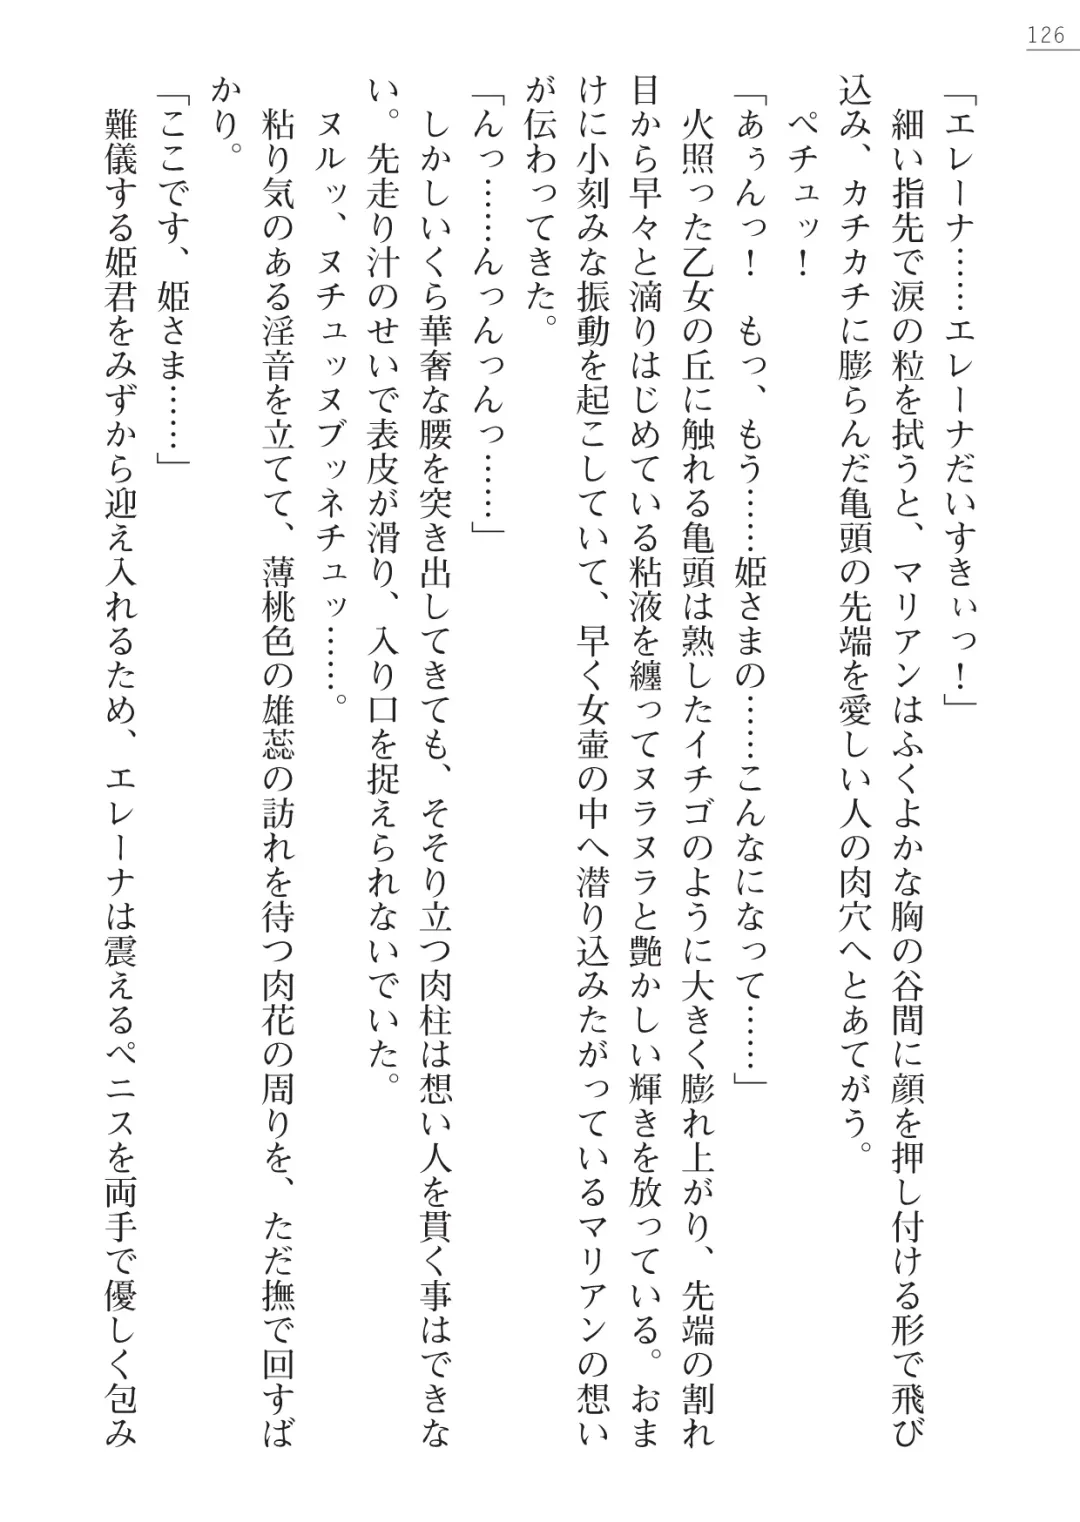 126
「エレーナ……エレーナだいすきぃっ！」
細い指先で涙の粒を拭うと、マリアンはふくよかな胸の谷間に顔を押し付ける形で飛び
込み、カチカチに膨らんだ亀頭の先端を愛しい人の肉穴へとあてがう。
ペチュッ！
「あぅんっ！　もっ、もう……姫さまの……こんなになって……」
火照った乙女の丘に触れる亀頭は熟したイチゴのように大きく膨れ上がり、先端の割れ
目から早々と滴りはじめている粘液を纏ってヌラヌラと艶かしい輝きを放っている。おま
けに小刻みな振動を起こしていて、早く女壷の中へ潜り込みたがっているマリアンの想い
が伝わってきた。
「んっ……んっんっんっ……」
しかしいくら華奢な腰を突き出してきても、そそり立つ肉柱は想い人を貫く事はできな
い。先走り汁のせいで表皮が滑り、入り口を捉えられないでいた。
ヌルッ、ヌチュッヌブッネチュッ……。
粘り気のある淫音を立てて、薄桃色の雄蕊の訪れを待つ肉花の周りを、ただ撫で回すば
かり。
「ここです、姫さま……」
難儀する姫君をみずから迎え入れるため、エレーナは震えるペニスを両手で優しく包み